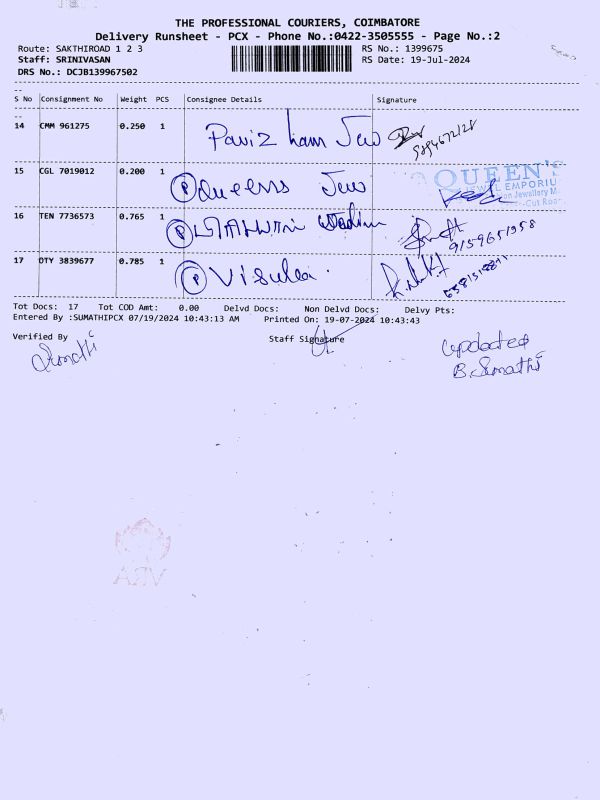 THE PROFESSIONAL COURIERS, COIMBATORE
Delivery Runsheet - PCX - Phone No.:0422-3505555 - Page No.:2
Route: SAKTHIROAD 1 2 3
RS No.: 1399675
Staff: SRINIVASAN
RS Date: 19-Jul-2024
DRS No.: DCJB139967502
S No Consignment No Weight PCS Consignee Details Signature
14 CMM 961275 0.250 1
15 CGL 7019012 0.200 1 P Queens Jew
QUEEN'S
JEWEL EMPORIU
16 TEN 7736573 0.765 1 P
9159651958
17 DTY 3839677 0.785 1 P
Tot Docs: 17 Tot COD Amt: 0.00 Delvd Docs: Non Delvd Docs: Delvy Pts:
Entered By :SUMATHIPCX 07/19/2024 10:43:13 AM Printed On: 19-07-2024 10:43:43
Verified By Staff Signature
Sumathi
Updated
B. Sumathi